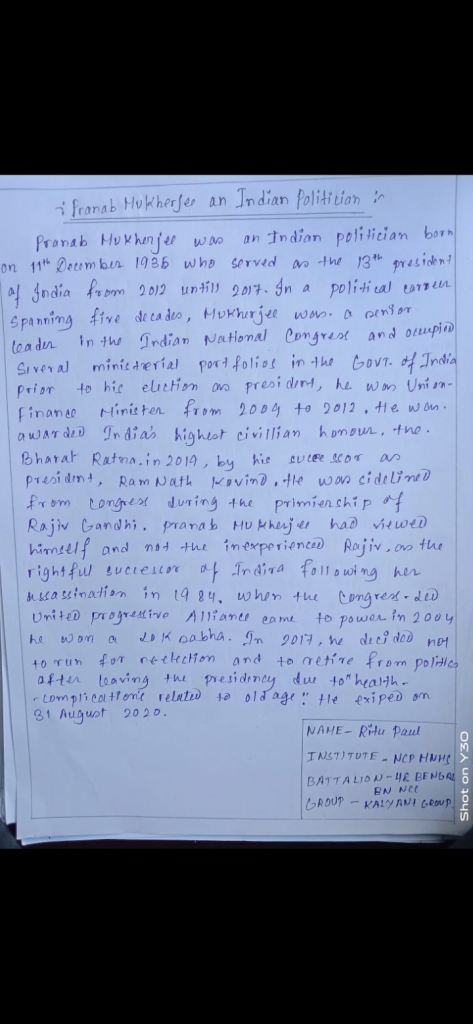 :- Pranab Mukherjee an Indian Politician :-
Pranab Mukherjee was an Indian politician born
on 11th December 1935 who served as the 13th president
of India from 2012 untill 2017. In a political carreer
spanning five decades, Mukherjee was. a senior
leader in the Indian National Congress and occupied
Several ministrerial portfolios in the Govt. of India
Prior to his election as president, he was Union-
Finance Minister from 2009 to 2012. He was.
awarded India's highest civillian honour, the.
Bharat Ratna.in 2019, by his successor as
president, Ram Nath Kovind. He was cidelined
from congress during the primiership of
Rajiv Gandhi. Pranab Mukherjee had viewed
himself and not the inexperienced Rajiv, as the
rightful successor of Indira following her
assassination in 1984. when the Congress-led
United progressive Alliance came to power in 2004
he won a Lok sabha. In 2017, he decided not
to run for reelection and to retire from politics
after leaving the presidency due to "health-
-complications related to old age". He exiped on
31 August 2020.
NAME - Ritu Paul
INSTITUTE - NCP HNHS
BATTALION - 48 BENGAL
BN NCC
GROUP - KALYANI GROUP.
Shot on Y30